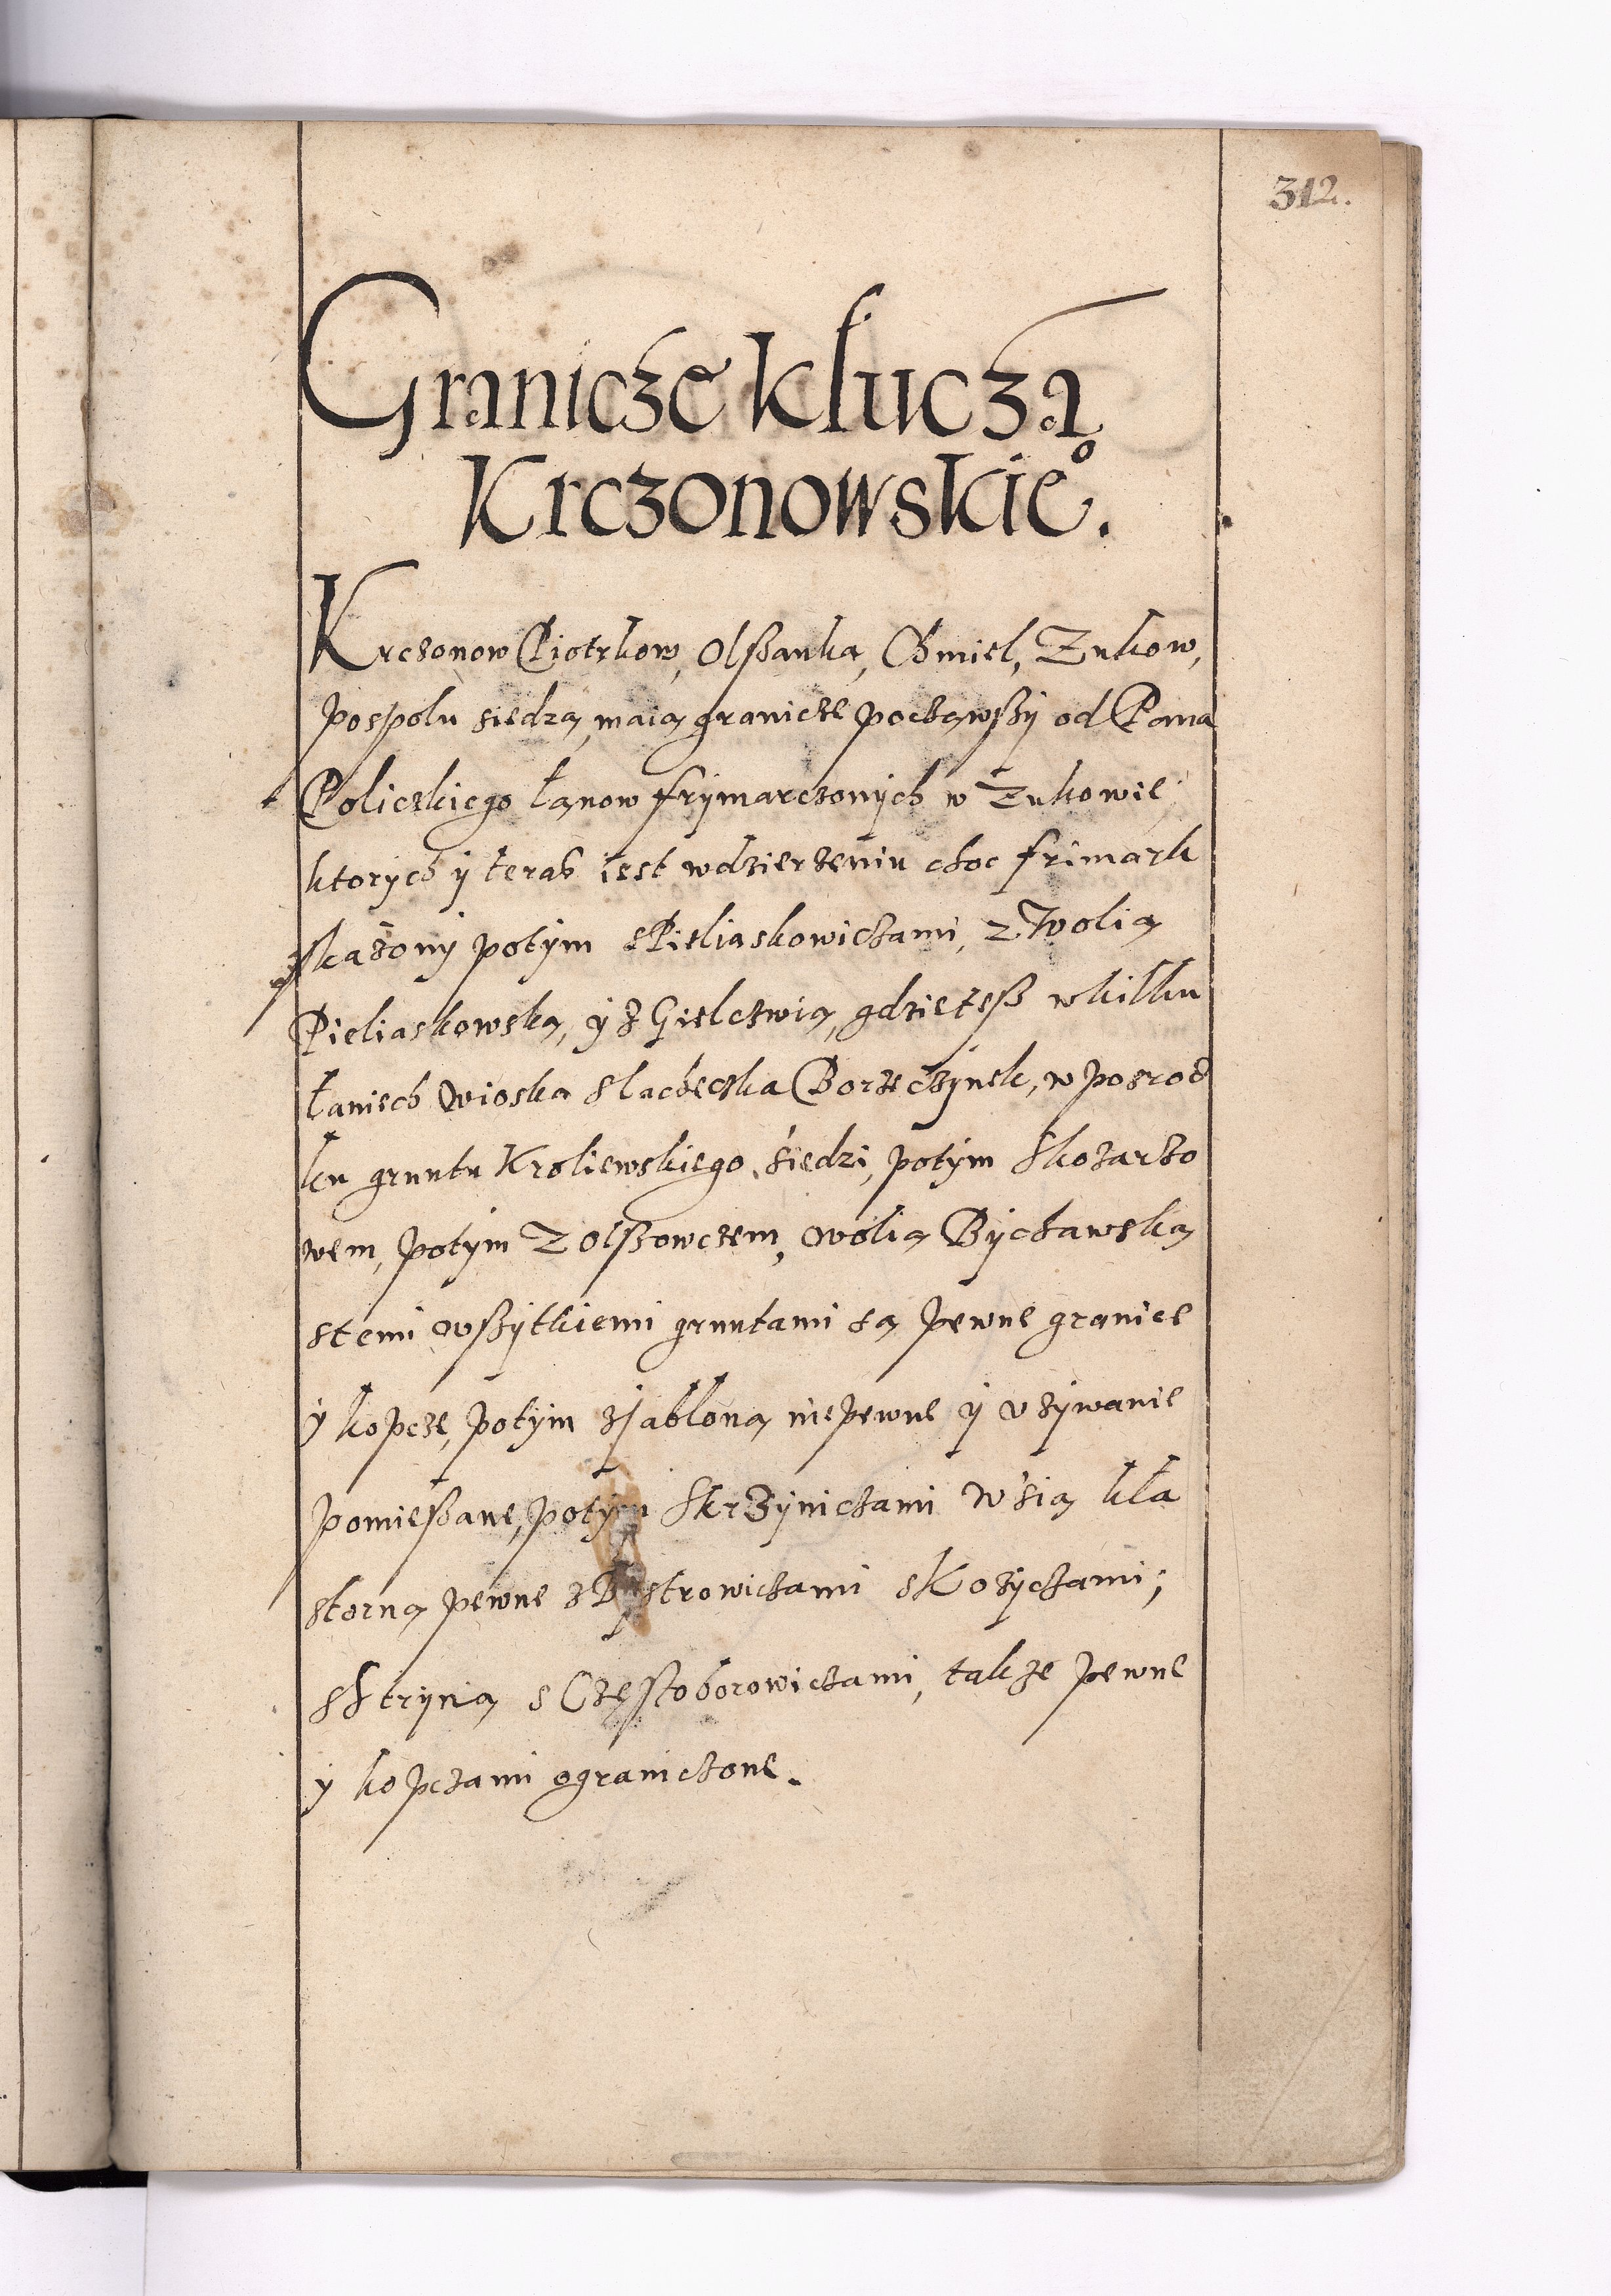 312.
Granicze klucza
Krczonowskie°.
Krczonow Piotrkow, Olßanka, Chmiel, Zukow,
pospolu siedzą, maią granicze począwßy od Pana
Policzkiego łanow frymarczonych w Zukowie,
ktorych y teraß iest wdzierżeniu choc frimark
skażony potym sPieliaskowiczami, z Wolią
Pieliaskowską, y z Giełczwią, gdzie też w kilku
łaniech wioska slachecka Borzęczynek, w posrod
ku gruntu Kroliewskiego siedzi, potym Skozarzo
wem, potym z Olßowczem, wolią Bychawską
stemi wßytkiemi gruntami są pewne granice
y kopcze, potym zJabloną niepewne y vzywanie
pomießane, potym Skrzyniczami Wsią kla
storną pewne z Bystrowiczami sKozyczami;
sStryną sCzęstoborowiczami, także pewne
y kopczami ograniczone.